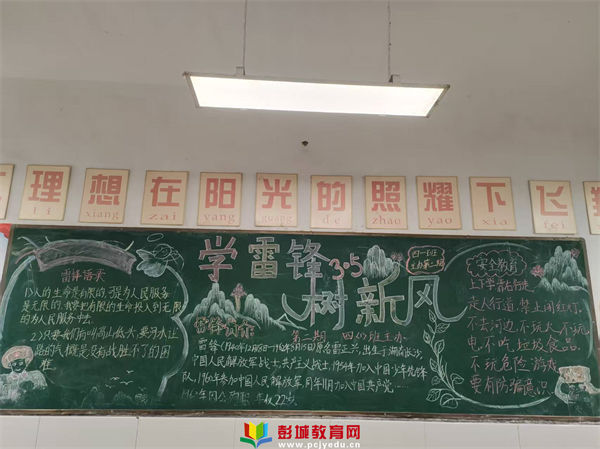 理想在阳光的照耀下飞
li xiang zai yang guang de zhao yao xia fei
学雷锋
3·5
树新风
四一班
主办第二期
雷锋语录
1)人的生命是有限的,可是为人民服务
是无限的,我要把有限的生命投入到无限
的为人民服务中去。
高山低头,要河水让
路的气概,是没有战胜不了的困
难
第二期 四(1)班主办
雷锋(1940年12月18日-1962年8月15日)原名雷正兴,出生于湖南长沙,
中国人民解放军战士,共产主义战士,1954年加入中国少年先锋
队,1960年参加中国人民解放军,同年11月加入中国共产党……
1962年因公殉职,年仅22岁。
安全教育
上下学靠右行走
走人行道,禁止闯红灯,
不去河边,不玩火,不玩
电,不吃垃圾食品
不玩危险游戏
要有防骗意识
彭城教育网
www.pcjyedu.cn